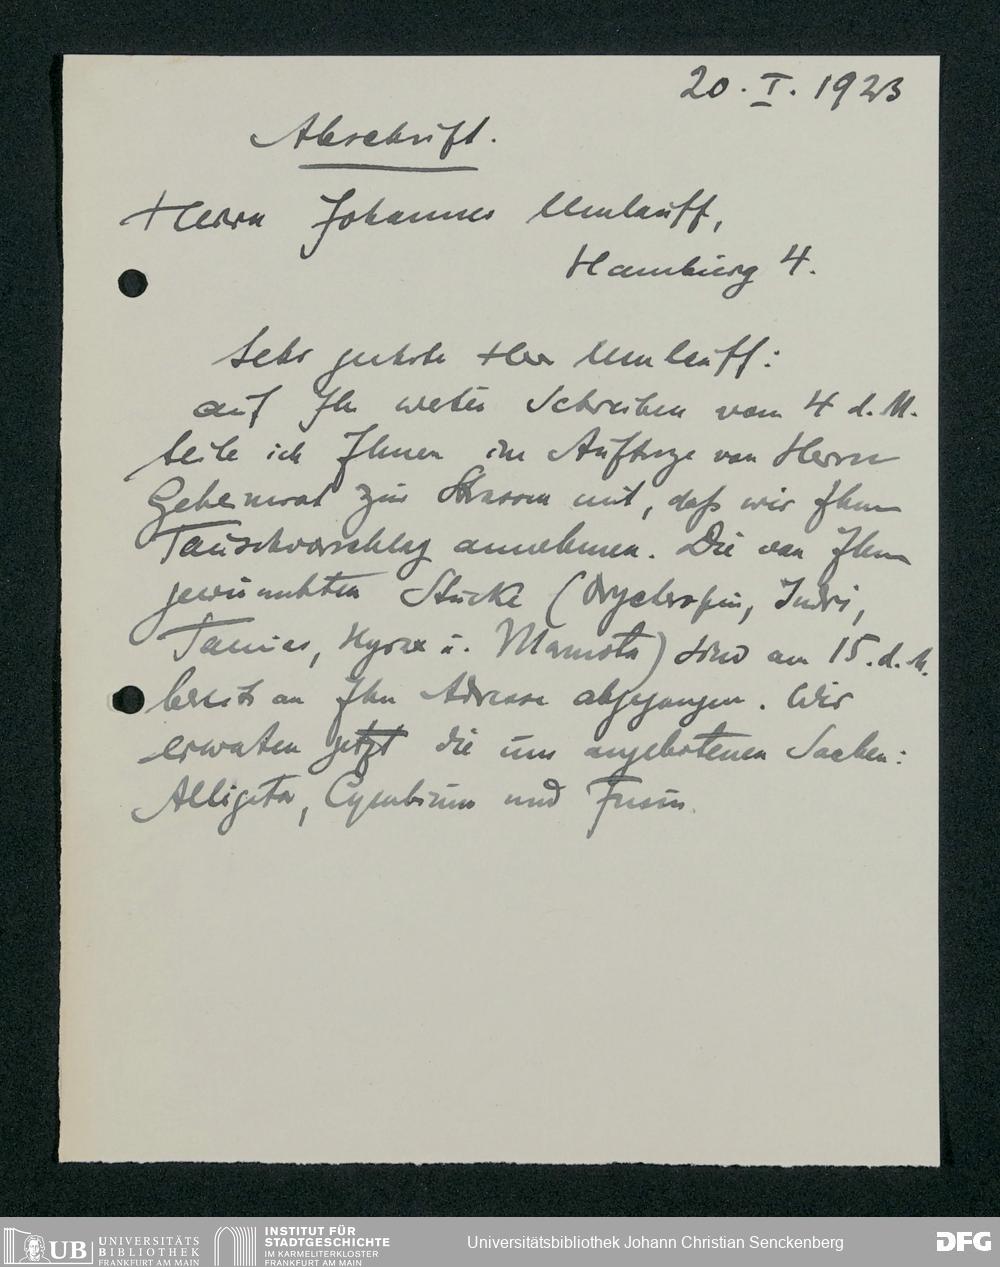 20. I. 1923
Abschrift.
Herrn Johannes Umlauff,
Hamburg 4.
Sehr geehrter Herr Umlauff:
auf Ihr wertes Schreiben vom 4 d. M.
teile ich Ihnen im Auftrage von Herrn
Geheimrat zur Strassen mit, daß wir Ihren
Tauschvorschlag annehmen. Die von Ihnen
gewünschten Stücke (Orycteropus, Indri,
Hyrax u. Marmota) sind am 15. d. M.
bereits an Ihre Adresse abgegangen. Wir
erwarten jetzt die uns angebotenen Sachen:
Alligator, Cymbium und Fusus.
UB UNIVERSITÄTS
BIBLIOTHEK
FRANKFURT AM MAIN
INSTITUT FÜR
STADTGESCHICHTE
IM KARMELITERKLOSTER
FRANKFURT AM MAIN
Universitätsbibliothek Johann Christian Senckenberg
DFG